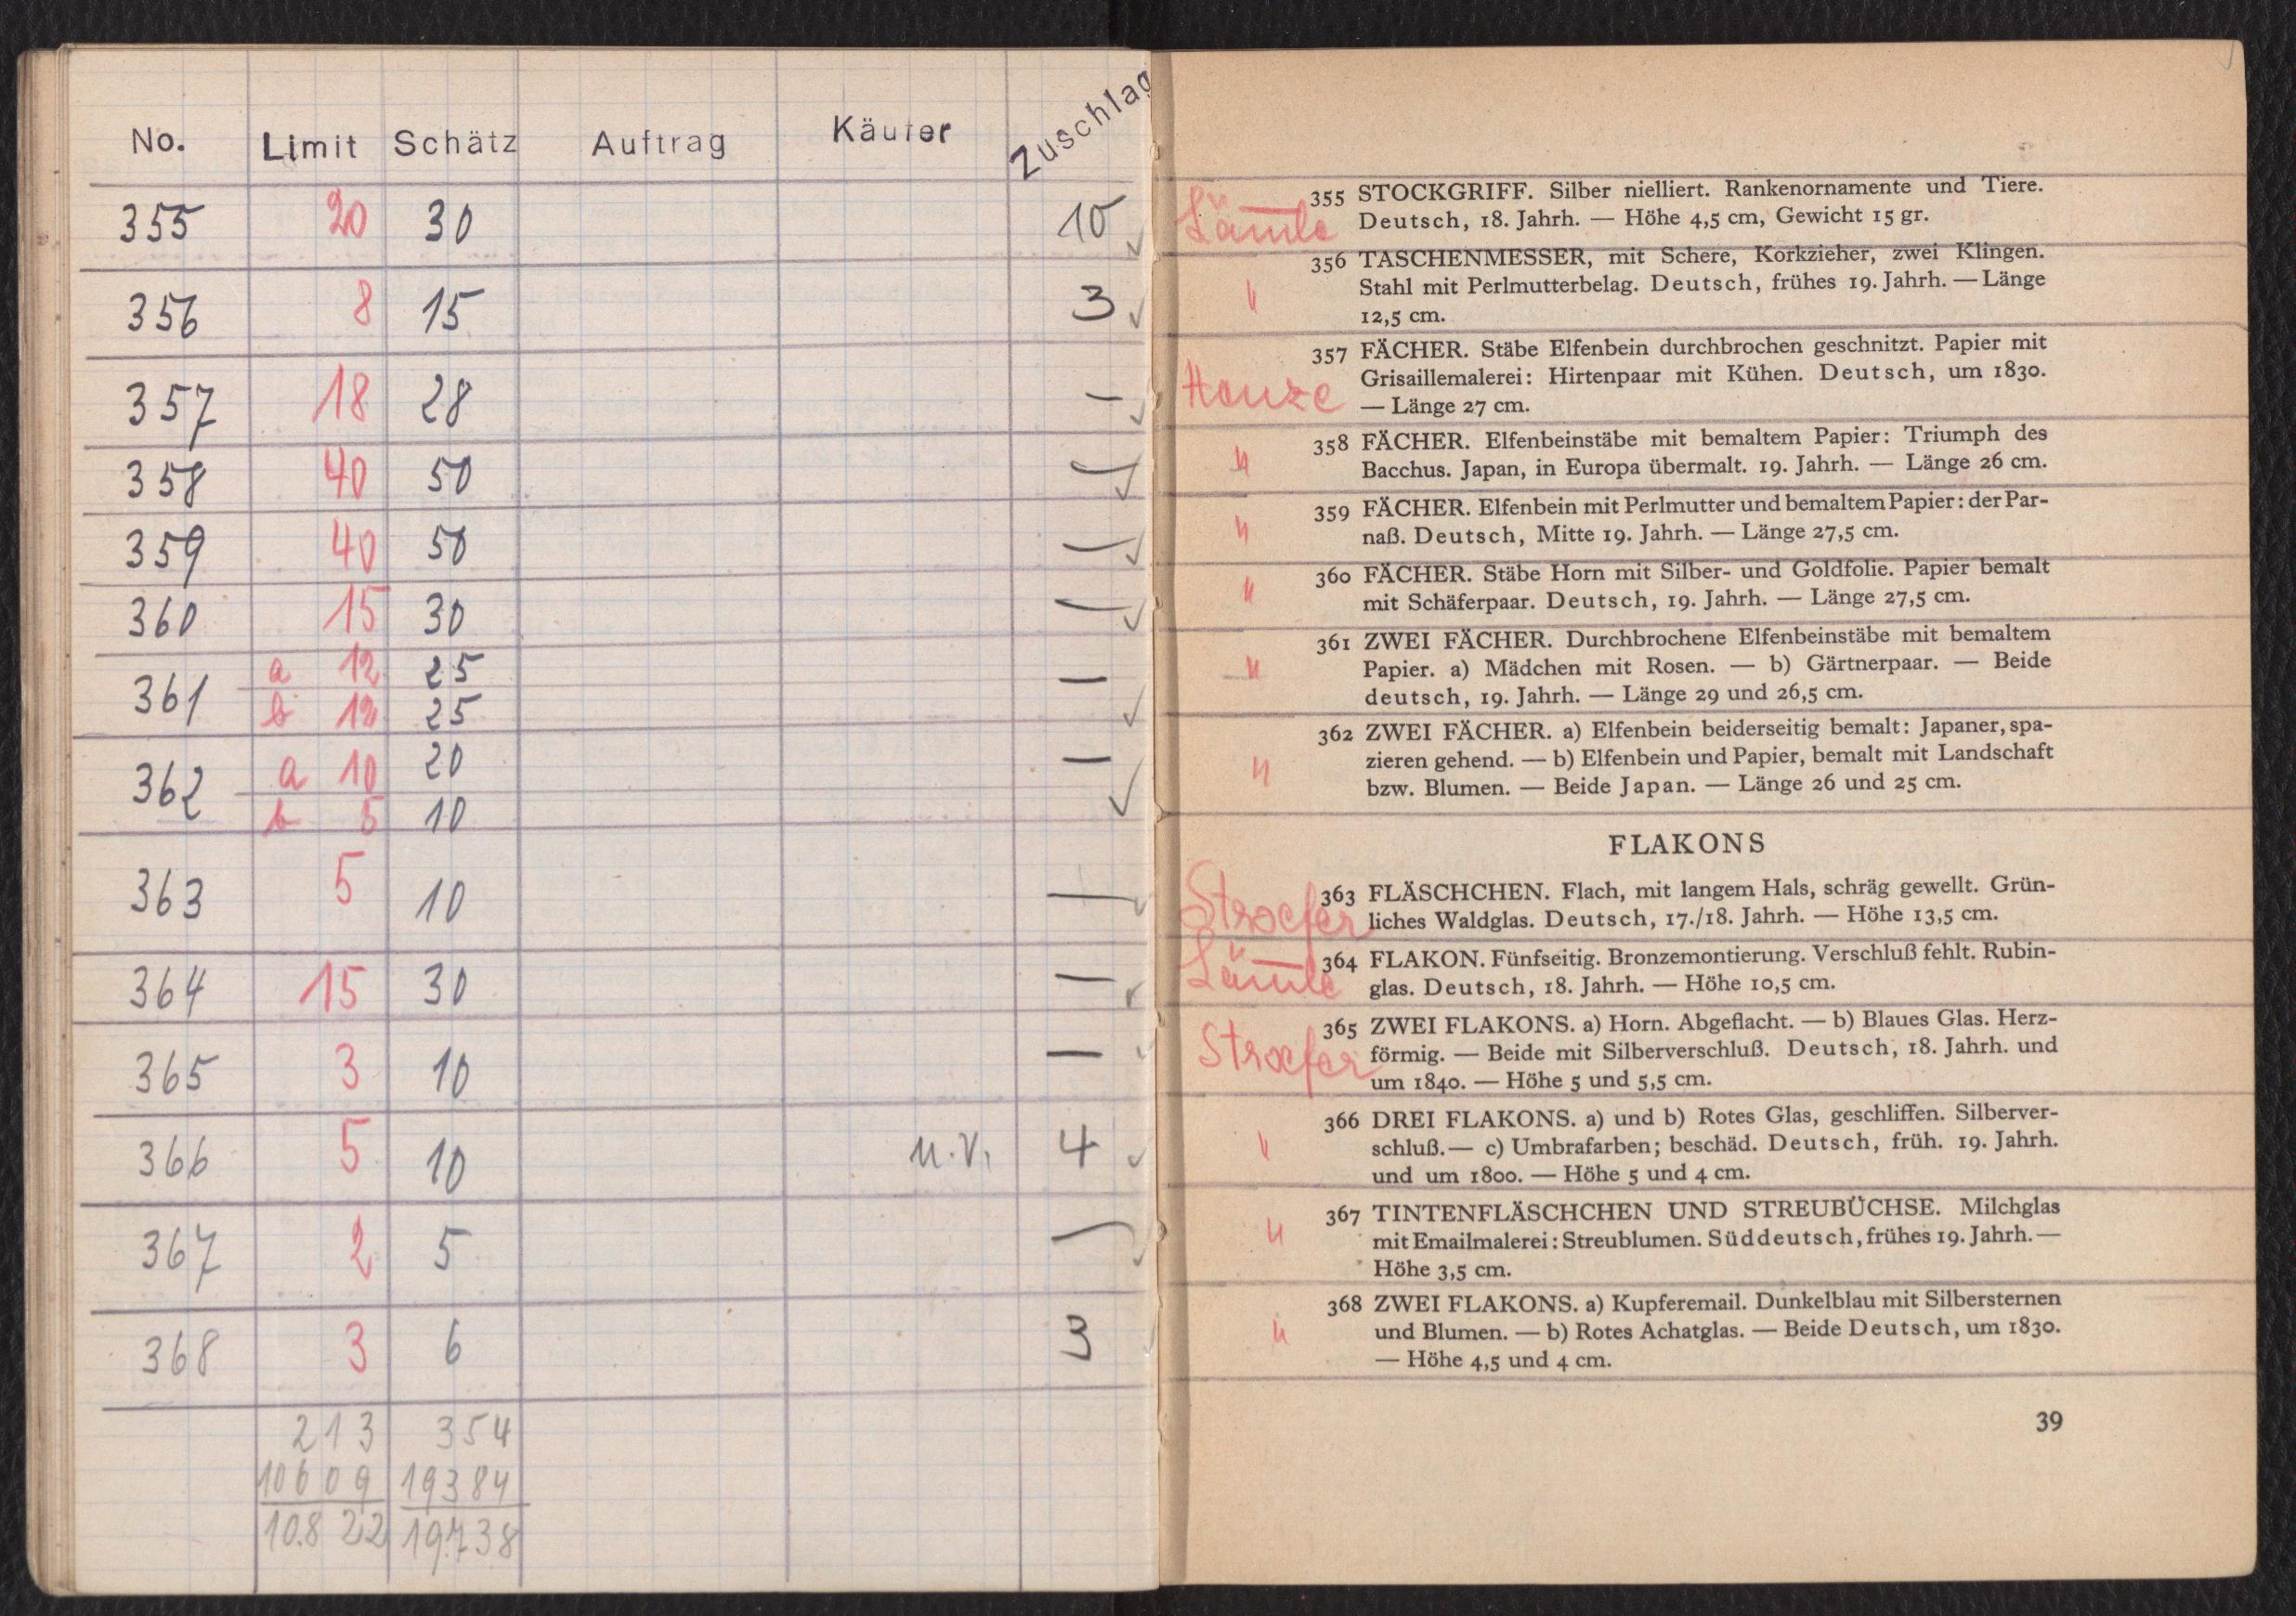 No. Limit Schätz Auftrag Käufer Zuschlag
355 20 30 10
356 8 15 3
357 18 28 —
358 40 50 —
359 40 50 —
360 15 30 —
361 a 12 25 —
b 12 25
362 a 10 20 —
b 5 10
363 5 10 —
364 15 30 —
365 3 10 —
366 5 10 u.V. 4
367 2 5 —
368 3 6 3
213 354
10609 19384
10.822 19.738
355 STOCKGRIFF. Silber nielliert. Rankenornamente und Tiere.
Lämle Deutsch, 18. Jahrh. — Höhe 4,5 cm, Gewicht 15 gr.
356 TASCHENMESSER, mit Schere, Korkzieher, zwei Klingen.
" Stahl mit Perlmutterbelag. Deutsch, frühes 19. Jahrh. — Länge
12,5 cm.
357 FÄCHER. Stäbe Elfenbein durchbrochen geschnitzt. Papier mit
Grisaillemalerei: Hirtenpaar mit Kühen. Deutsch, um 1830.
— Länge 27 cm.
358 FÄCHER. Elfenbeinstäbe mit bemaltem Papier: Triumph des
" Bacchus. Japan, in Europa übermalt. 19. Jahrh. — Länge 26 cm.
359 FÄCHER. Elfenbein mit Perlmutter und bemaltem Papier: der Par-
" naß. Deutsch, Mitte 19. Jahrh. — Länge 27,5 cm.
360 FÄCHER. Stäbe Horn mit Silber- und Goldfolie. Papier bemalt
" mit Schäferpaar. Deutsch, 19. Jahrh. — Länge 27,5 cm.
361 ZWEI FÄCHER. Durchbrochene Elfenbeinstäbe mit bemaltem
" Papier. a) Mädchen mit Rosen. — b) Gärtnerpaar. — Beide
deutsch, 19. Jahrh. — Länge 29 und 26,5 cm.
362 ZWEI FÄCHER. a) Elfenbein beiderseitig bemalt: Japaner, spa-
" zieren gehend. — b) Elfenbein und Papier, bemalt mit Landschaft
bzw. Blumen. — Beide Japan. — Länge 26 und 25 cm.
FLAKONS
363 FLÄSCHCHEN. Flach, mit langem Hals, schräg gewellt. Grün-
Stroefer liches Waldglas. Deutsch, 17./18. Jahrh. — Höhe 13,5 cm.
364 FLAKON. Fünfseitig. Bronzemontierung. Verschluß fehlt. Rubin-
Lämle glas. Deutsch, 18. Jahrh. — Höhe 10,5 cm.
365 ZWEI FLAKONS. a) Horn. Abgeflacht. — b) Blaues Glas. Herz-
Stroefer förmig. — Beide mit Silberverschluß. Deutsch, 18. Jahrh. und
um 1840. — Höhe 5 und 5,5 cm.
366 DREI FLAKONS. a) und b) Rotes Glas, geschliffen. Silberver-
" schluß. — c) Umbrafarben; beschäd. Deutsch, früh. 19. Jahrh.
und um 1800. — Höhe 5 und 4 cm.
367 TINTENFLÄSCHCHEN UND STREUBÜCHSE. Milchglas
" mit Emailmalerei: Streublumen. Süddeutsch, frühes 19. Jahrh. —
Höhe 3,5 cm.
368 ZWEI FLAKONS. a) Kupferemail. Dunkelblau mit Silbersternen
" und Blumen. — b) Rotes Achatglas. — Beide Deutsch, um 1830.
— Höhe 4,5 und 4 cm.
39